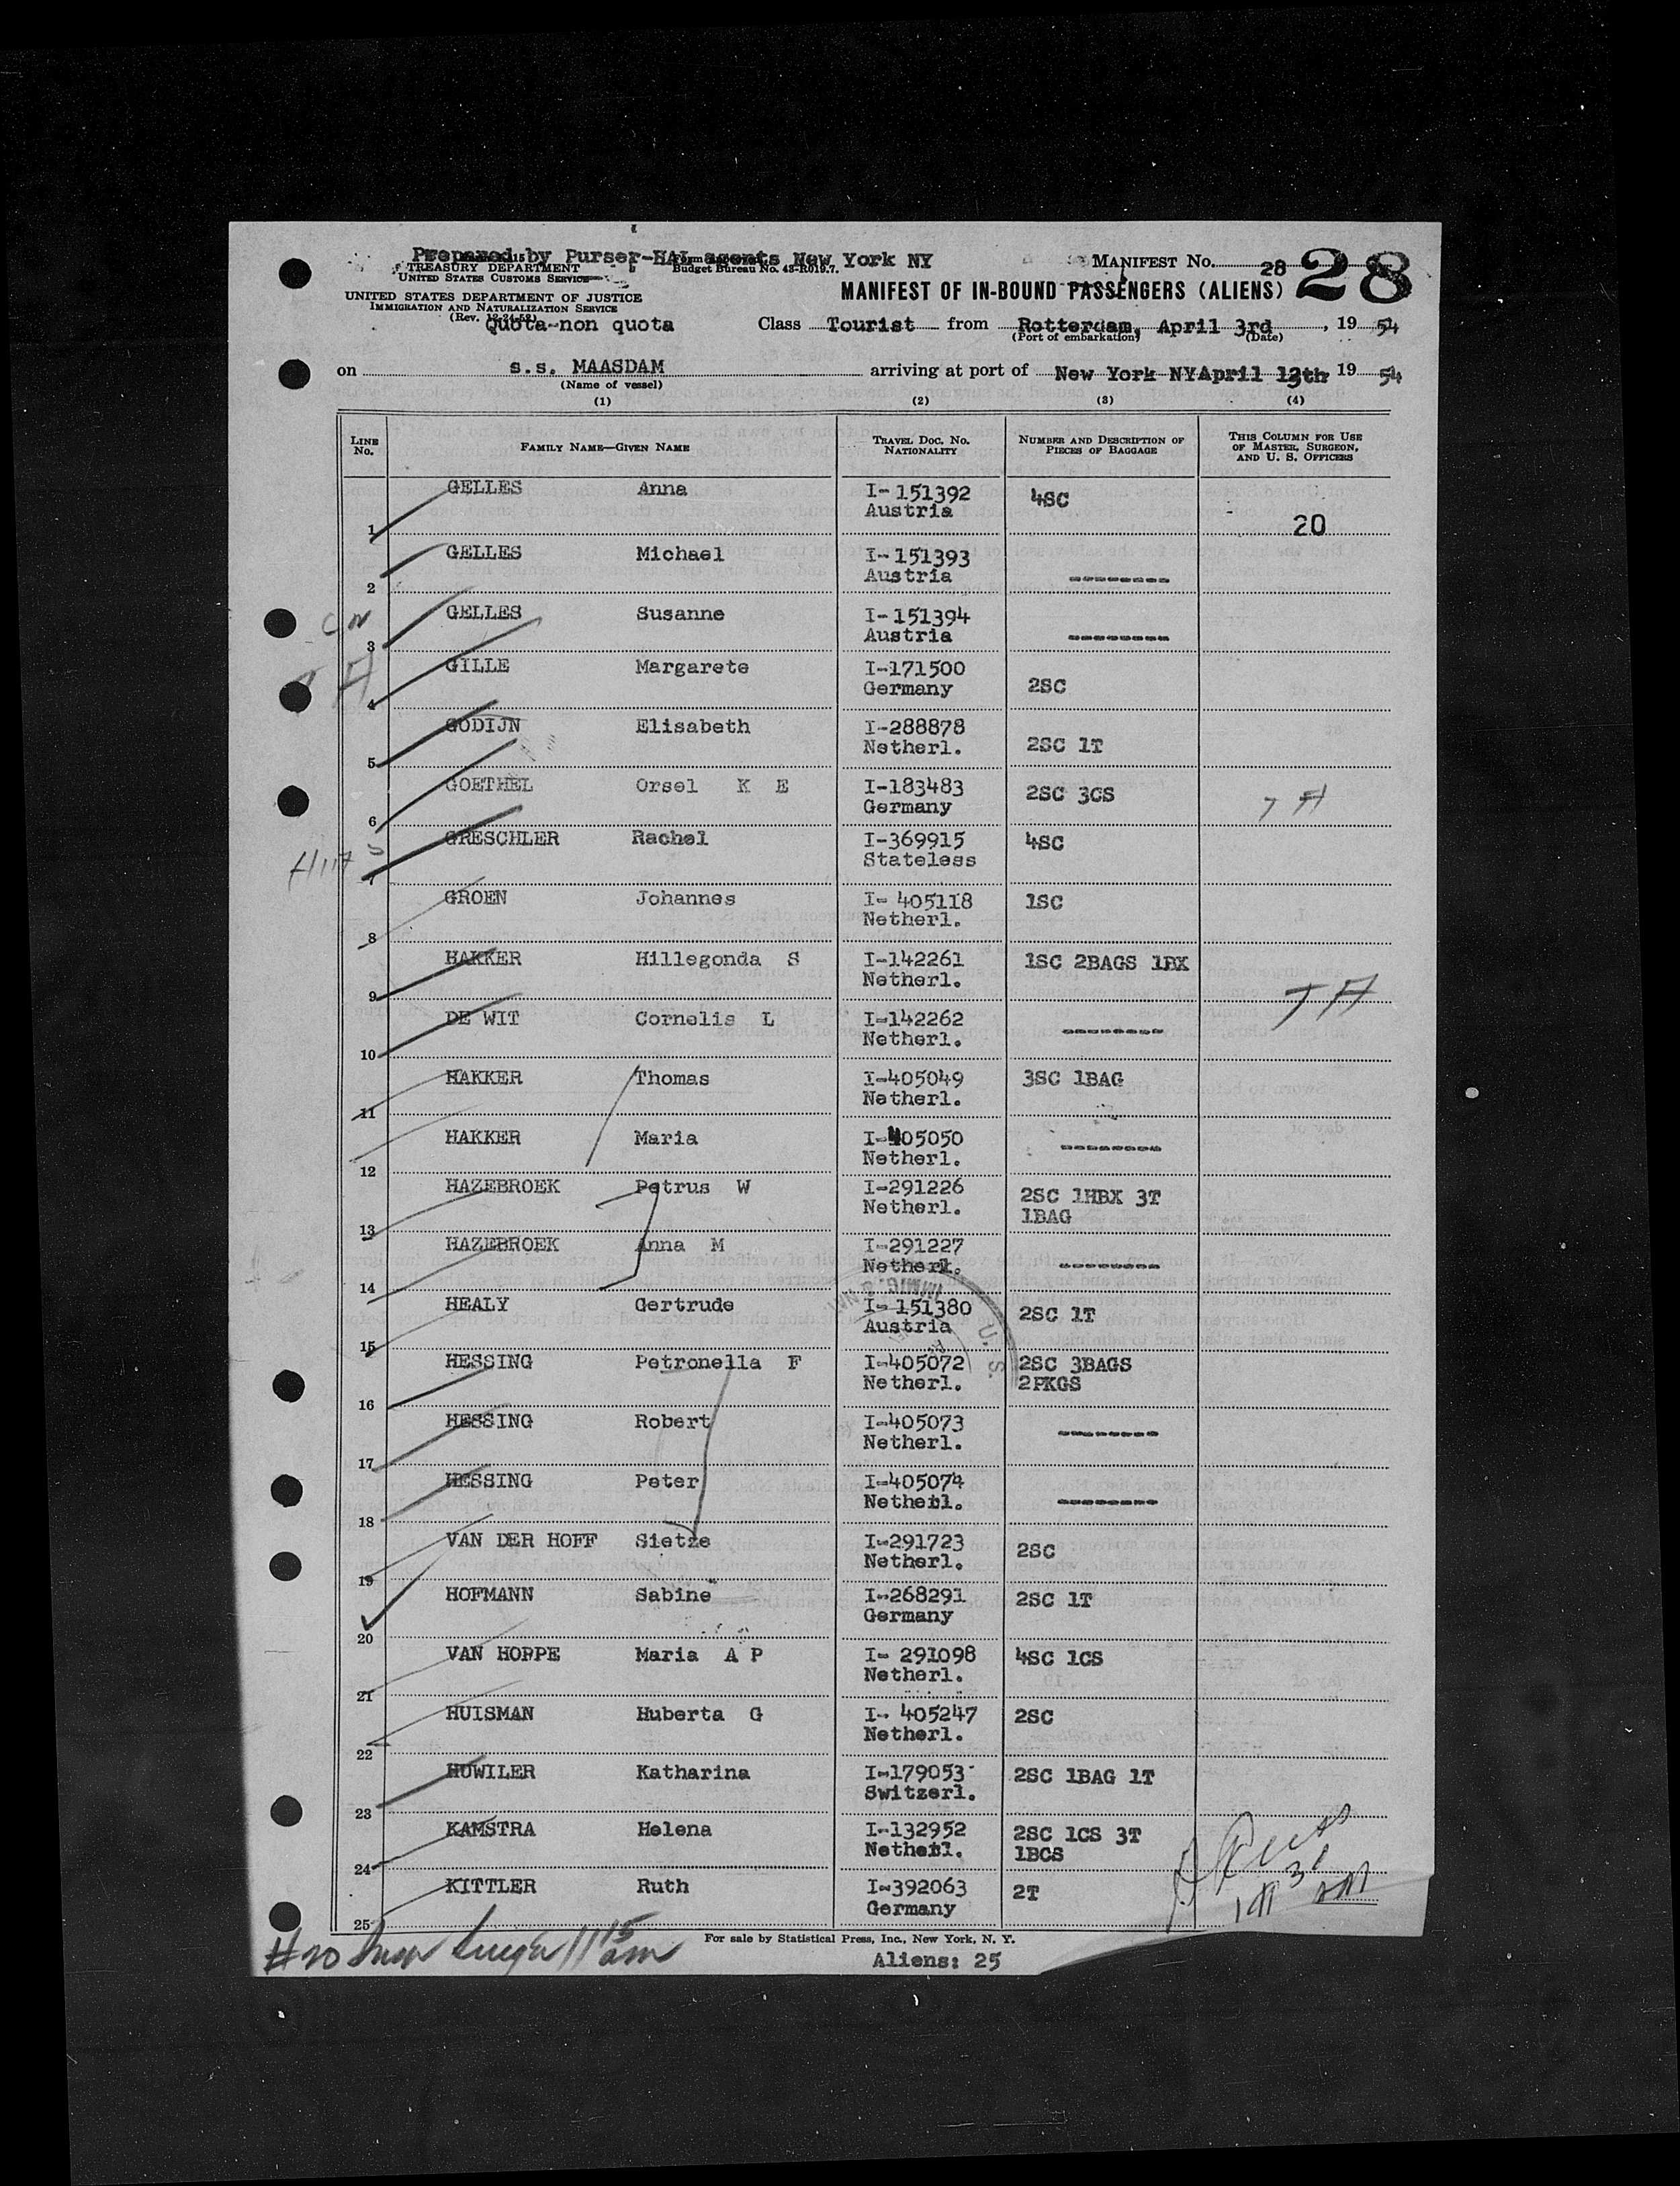 Prepared by Purser-HAL agents New York NY
TREASURY DEPARTMENT
UNITED STATES CUSTOMS SERVICE
Budget Bureau No. 43-R019.7.
MANIFEST No. 28
28
UNITED STATES DEPARTMENT OF JUSTICE
IMMIGRATION AND NATURALIZATION SERVICE
(Rev. 12-24-52)
MANIFEST OF IN-BOUND PASSENGERS (ALIENS)
Quota-non quota Class Tourist from Rotterdam, April 3rd, 19 54
(Port of embarkation) (Date)
on s.s. MAASDAM arriving at port of New York NY April 13th 19 54
(Name of vessel)
(1) (2) (3) (4)
LINE No. FAMILY NAME—GIVEN NAME TRAVEL DOC. No. NATIONALITY NUMBER AND DESCRIPTION OF PIECES OF BAGGAGE THIS COLUMN FOR USE OF MASTER, SURGEON, AND U. S. OFFICERS
1 GELLES Anna I-151392 Austria 4SC 20
2 GELLES Michael I-151393 Austria --------
3 GELLES Susanne I-151394 Austria --------
4 GILLE Margarete I-171500 Germany 2SC
5 GODIJN Elisabeth I-288878 Netherl. 2SC 1T
6 GOETHEL Orsel K E I-183483 Germany 2SC 3CS
7 GRESCHLER Rachel I-369915 Stateless 4SC
8 GROEN Johannes I-405118 Netherl. 1SC
9 HAKKER Hillegonda S I-142261 Netherl. 1SC 2BAGS 1BX
10 DE WIT Cornelis L I-142262 Netherl. --------
11 HAKKER Thomas I-405049 Netherl. 3SC 1BAG
12 HAKKER Maria I-405050 Netherl. --------
13 HAZEBROEK Petrus W I-291226 Netherl. 2SC 1HBX 3T 1BAG
14 HAZEBROEK Anna M I-291227 Netherl. --------
15 HEALY Gertrude I-151380 Austria 2SC 1T
16 HESSING Petronella F I-405072 Netherl. 2SC 3BAGS 2PKGS
17 HESSING Robert I-405073 Netherl. --------
18 HESSING Peter I-405074 Netherl. --------
19 VAN DER HOFF Sietze I-291723 Netherl. 2SC
20 HOFMANN Sabine I-268291 Germany 2SC 1T
21 VAN HOPPE Maria A P I-291098 Netherl. 4SC 1CS
22 HUISMAN Huberta G I-405247 Netherl. 2SC
23 HUWILER Katharina I-179053 Switzerl. 2SC 1BAG 1T
24 KAMSTRA Helena I-132952 Netherl. 2SC 1CS 3T 1BCS
25 KITTLER Ruth I-392063 Germany 2T
For sale by Statistical Press, Inc., New York, N. Y.
#20
Aliens: 25